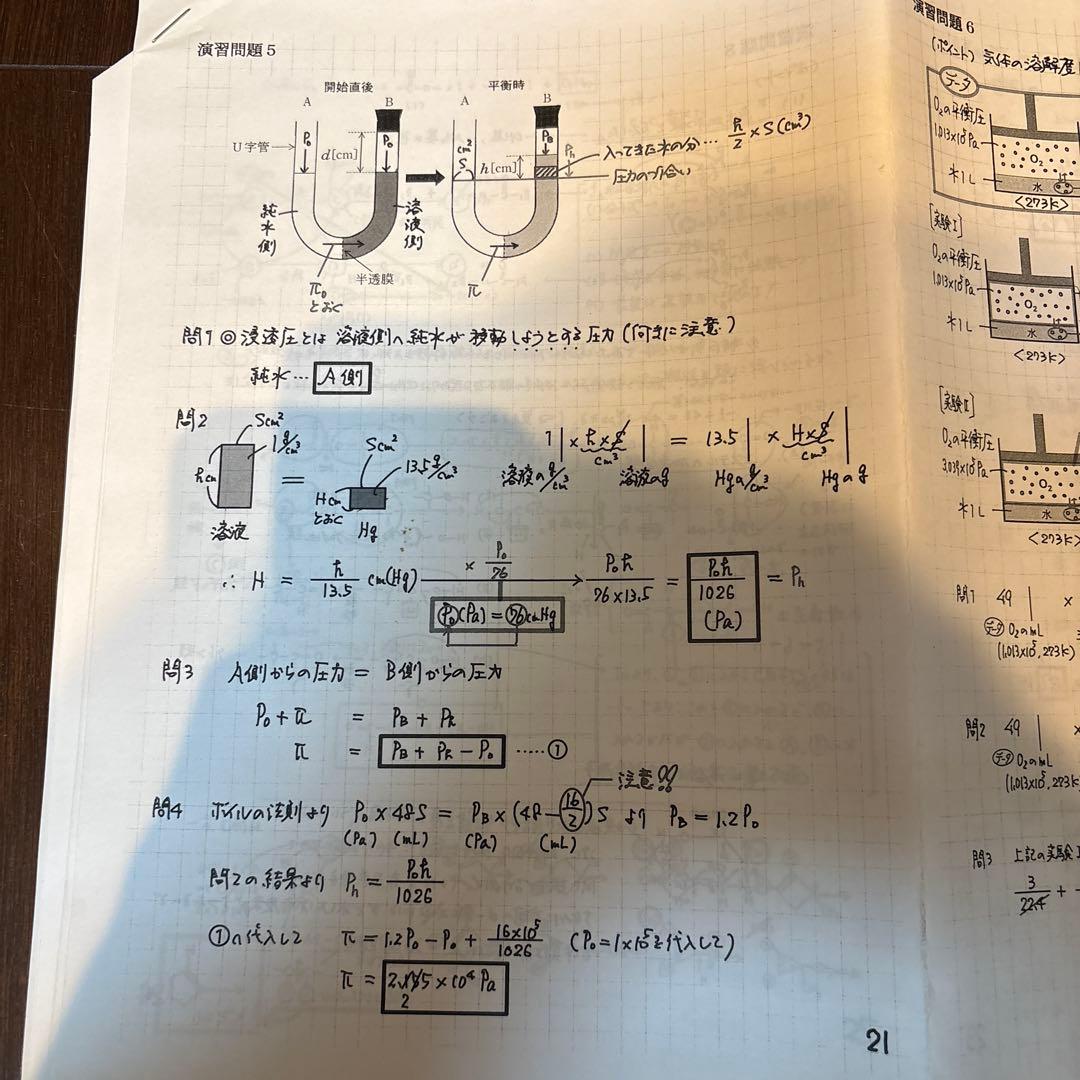 演習問題5
開始直後
平衡時
A
B
A
B
U字管
P₀
d[cm]
P₀
S
cm²
h[cm]
P_B
P_h
入ってきた水の分… h/2 × S(cm³)
圧力のつり合い
純水側
溶液側
半透膜
π₀とおく
π
問1 ◎ 浸透圧とは 溶液側へ純水が移動しようとする圧力(向きに注意)
純水… A側
問2
Scm²
1g/cm³
hcm
溶液
=
Scm²
13.5g/cm³
Hcmとおく
Hg
1 | × h×S/cm³ | = 13.5 | × H×S/cm³ |
溶液のg/cm³ 溶液のg Hgのg/cm³ Hgのg
∴ H = h/13.5 cm(Hg) × P₀/76 → P₀h/76×13.5 = P₀h/1026 (Pa) = P_h
P₀(Pa) = 76cmHg
問3 A側からの圧力 = B側からの圧力
P₀ + π = P_B + P_h
π = P_B + P_h − P₀ ……①
注意!!
問4 ボイルの法則より P₀ × 48S = P_B × (48 − 16/2)S より P_B = 1.2P₀
(Pa) (mL) (Pa) (mL)
問2の結果より P_h = P₀h/1026
①へ代入して π = 1.2P₀ − P₀ + 16×10⁵/1026 (P₀ = 1×10⁵を代入して)
π = 2.2 × 10⁴ Pa
21
演習問題6
(ポイント) 気体の溶解度
データ
O₂の平衡圧
1.013×10⁵Pa
O₂
水1L
水
<273K>
[実験I]
O₂の平衡圧
1.013×10⁵Pa
O₂
水1L
水
<273K>
[実験II]
O₂の平衡圧
3.039×10⁵Pa
O₂
水1L
水
<273K>
問1 49 | ×
データ O₂のmL
(1.013×10⁵, 273K)
問2 49 | ×
データ O₂のmL
(1.013×10⁵, 273K)
問3 上記の実験
3/22.4 +